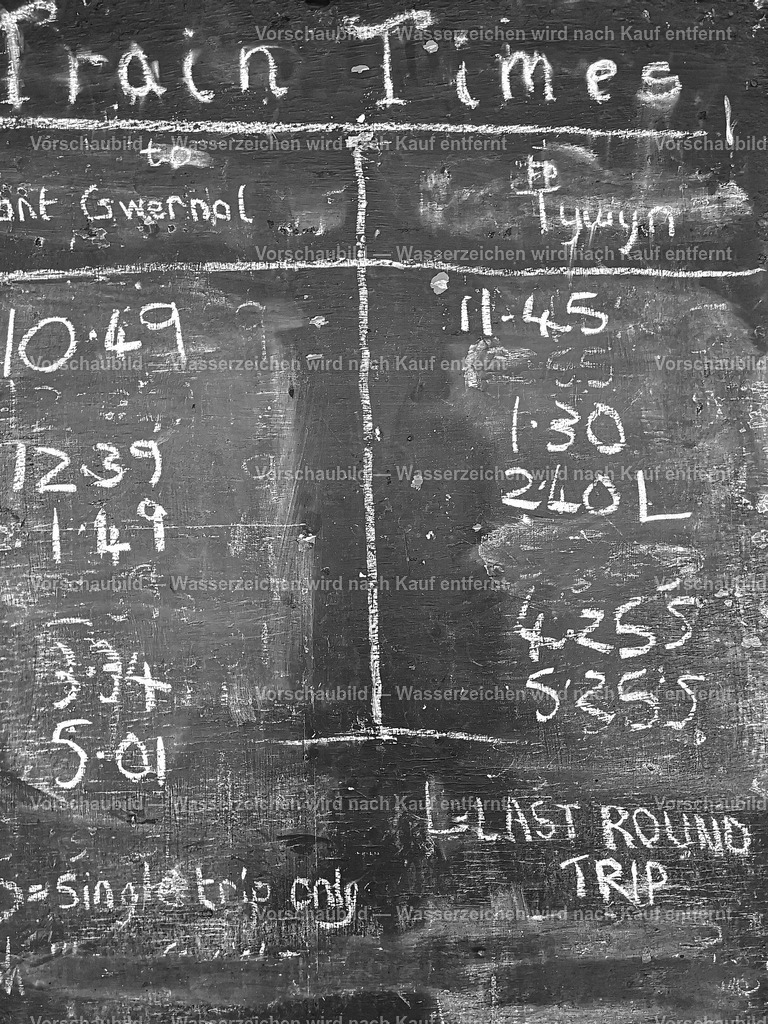 Train Times
to
ant Gwernol
to
Tywyn
10.49
12.39
1.49
3.34
5.01
11.45
1.30
2.40 L
4.25 S
5.25 S
L=LAST ROUND
TRIP
S=Single trip only
Vorschaubild — Wasserzeichen wird nach Kauf entfernt